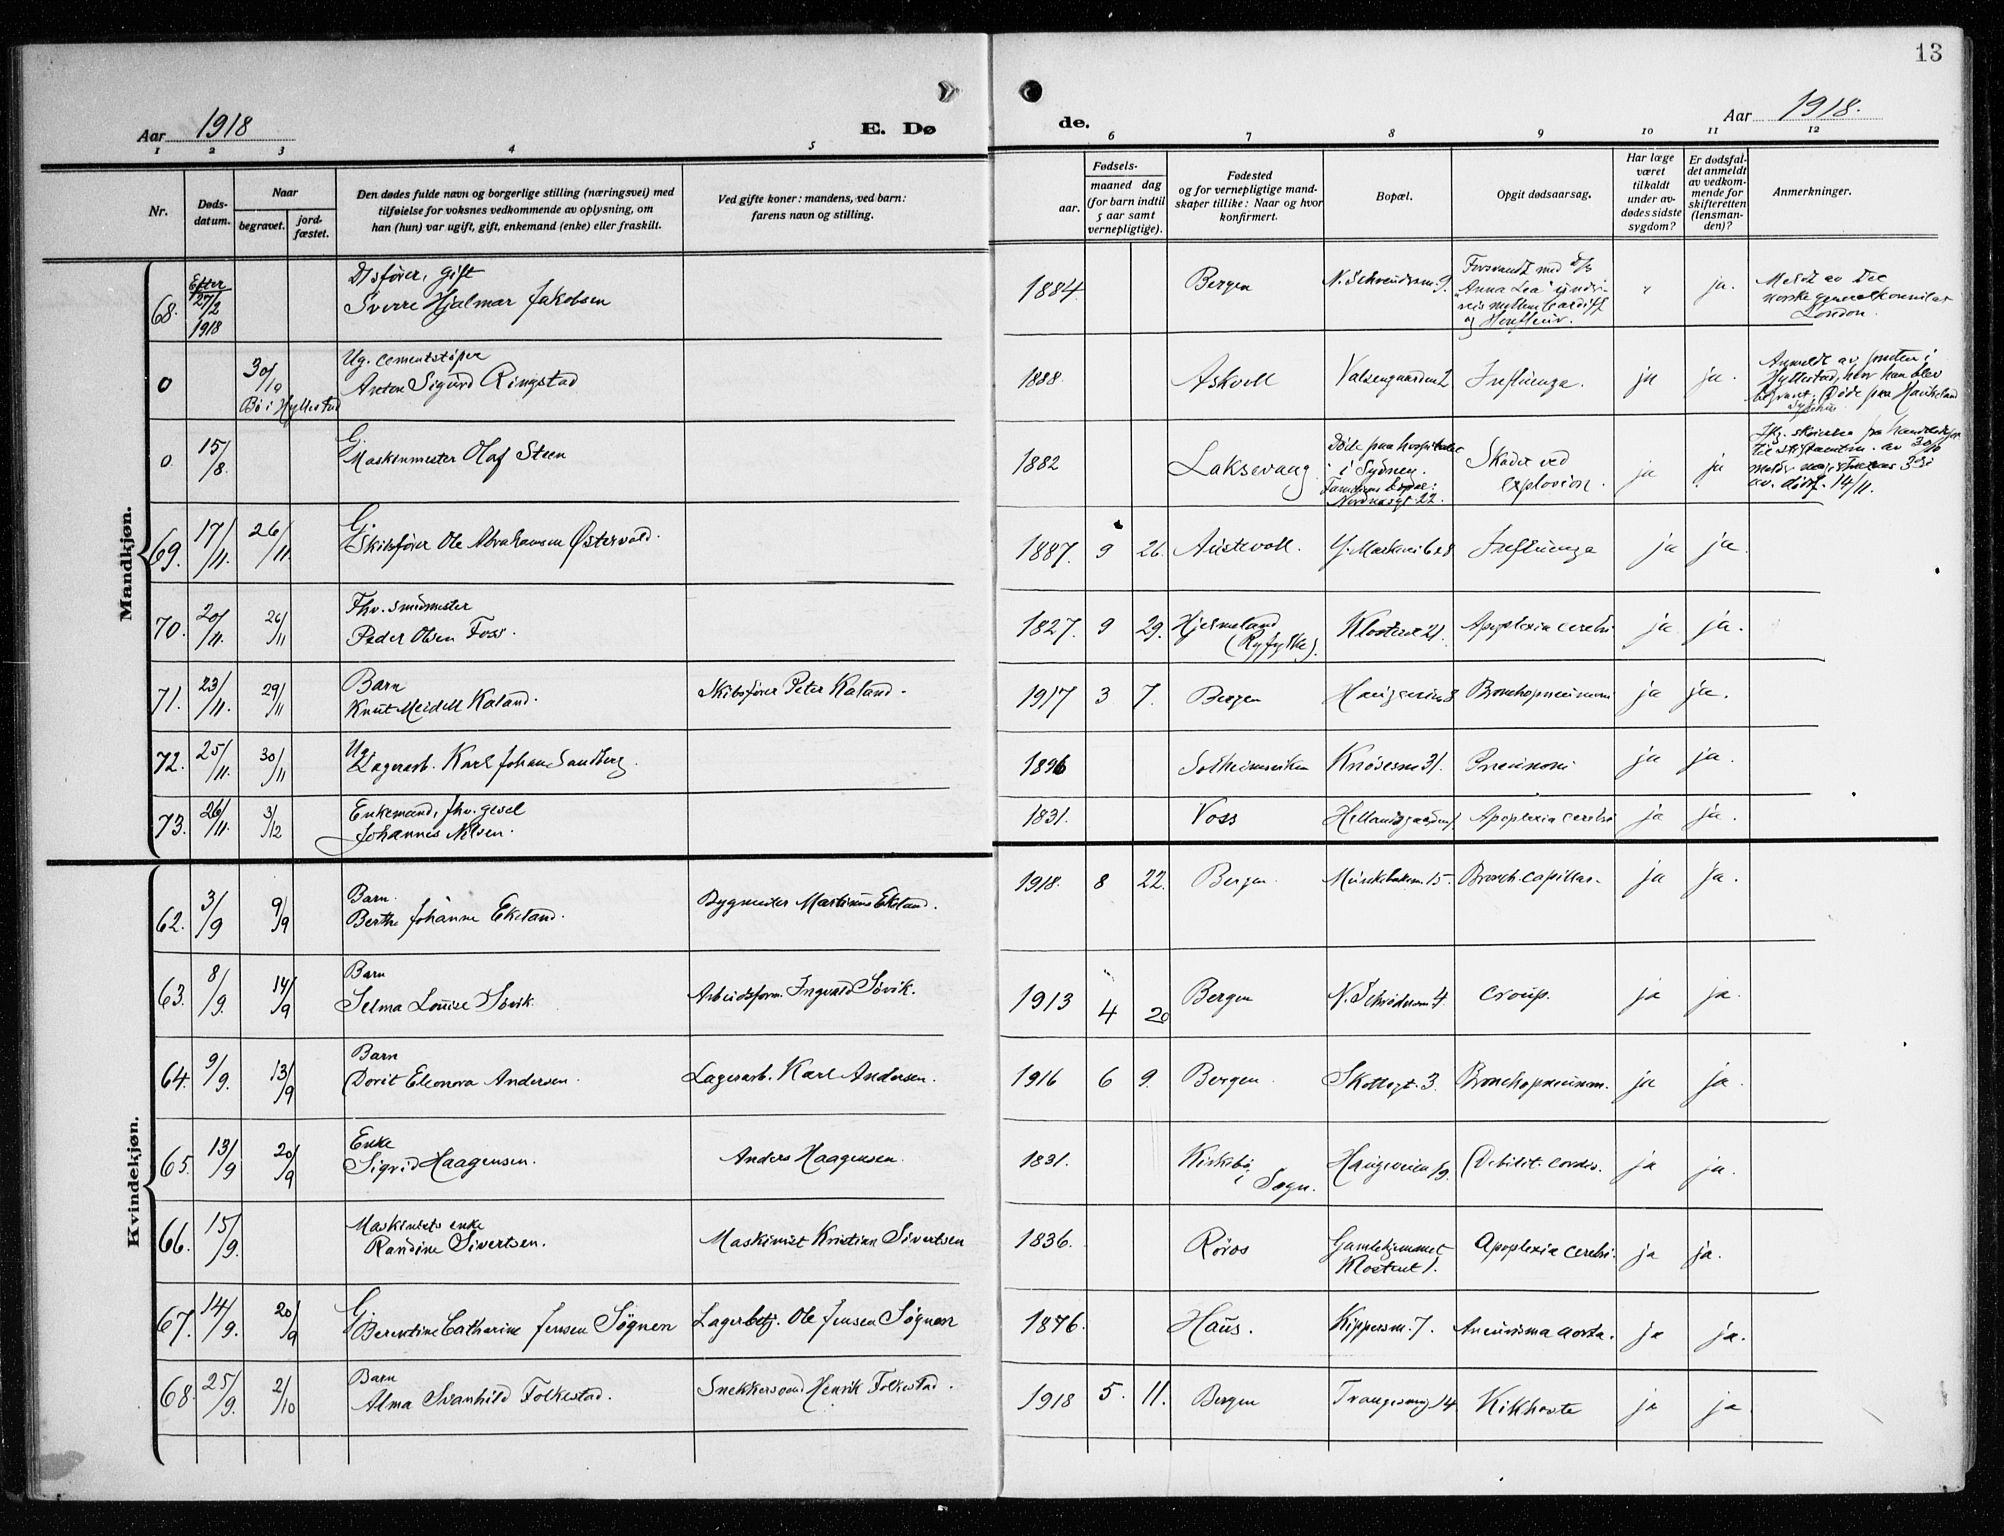 13
Aar 1918
E. Dø
de.
Aar 1918.
1 2 3 4 5 6 7 8 9 10 11 12
Nr.
Døds-
datum.
Naar
begravet.
jord-
fæstet.
Den dødes fulde navn og borgerlige stilling (næringsvei) med
tilføielse for voksnes vedkommende av oplysning, om
han (hun) var ugift, gift, enkemand (enke) eller fraskilt.
Ved gifte koner: mandens, ved barn:
farens navn og stilling.
Fødsels-
aar.
maaned dag
(for barn indtil
5 aar samt
vernepligtige).
Fødested
og for vernepligtige mand-
skaper tillike: Naar og hvor
konfirmert.
Bopæl.
Opgit dødsaarsag.
Har læge
været
tilkaldt
under av-
dødes sidste
sygdom?
Er dødsfal-
det anmeldt
av vedkom-
mende for
skifteretten
(lensman-
den)?
Anmerkninger.
Mandkjøn.
68. Efter 27/2 1918
D/sfører, gift
Sverre Hjalmar Jakobsen
1884. Bergen 9.
Forsvandt med d/s
"Anna Lea" under
reis mellem Cardiff
og Honfleur.
" ja.
Meldt av det
norske generalkonsulat
London.
0 30/10
Bø i Hyllestad
Ug. cementstøper
Anton Sigurd Ringstad
1888. Askvoll Influenza. ja ja.
Anmeldt av presten i
Hyllestad, hvor han blev
begravet. Døde paa Haukeland
sykehus
0. 15/8
G.
Maskinmester Olaf Steen
1882 Laksevaag
Døde paa hospitalet
i Sydney.
Familiens bopæl:
Nordnesgt. 22.
Skadet ved
explosion.
ja ja
av 30/10
av 14/11.
69. 17/11. 26/11
G.
Skibsfører Ole Abrahamsen Østervold.
1887. 9 26. Austevoll. Influenza ja ja.
70. 20/11. 26/11
Fhv. smedmester
Peder Olsen Foss.
1827. 9 29. Hjelmeland
(Ryfylke).
Klosteret 21. Apoplexia cerebri ja ja.
71. 23/11. 29/11
Barn
Knut Meidell Kaland.
Skibsfører Peter Kaland.
1917 3 7. Bergen Haugeveien 8 Bronchopneumoni ja ja.
72. 25/11. 30/11
Ug.
Lagerarb. Karl Johan Sandberg.
1896 Solheimsviken Knøsesm 31. Pneumoni ja ja.
73. 26/11. 3/12
Enkemand, fhv. gesel
Johannes Nilsen.
1831. Voss Apoplexia cerebri ja ja.
Kvindekjøn.
62. 3/9 9/9
Barn.
Berthe Johanne Ekeland.
Bygmester Martinus Ekeland.
1918. 8 22. Bergen. Bronch. capillar. ja ja.
63. 8/9. 14/9
Barn
Selma Louise Søvik.
Arbeidsform. Ingvald Søvik.
1913 4 20 Bergen 4. Croup. ja ja.
64. 9/9. 13/9
Barn
Dorit Eleonora Andersen.
Lagerarb. Karl Andersen.
1916 6 9. Bergen. Skottegt. 3. Bronchopneumon. ja ja.
65. 13/9 20/9
Enke
Sigrid Haagensen.
Anders Haagensen.
1831. Kirkebø
i Sogn.
Haugeveien 19. Debilit. cordis. ja ja.
66. 15/9.
Maskinists enke
Randine Sivertsen.
Maskinist Kristian Sivertsen
1836. Røros
Gamlehjemmet
Klosteret 1.
Apoplexia cerebri. ja ja.
67. 14/9. 20/9
G.
Berentine Catharine Jensen Søgnen
Lagerbetj. Ole Jensen Søgnen
1876. Haus. Kippersm. 7. Aneurisma aorta. ja ja.
68. 25/9. 2/10
Barn
Alma Svanhild Folkestad.
Snekkersvend Henrik Folkestad.
1918 5. 11. Bergen Trangesmug 14 Kikhoste ja ja